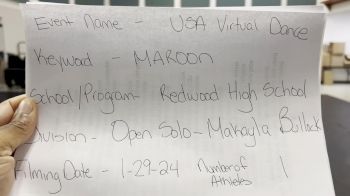 Event Name - USA Virtual Dance
Keyword - MAROON
School/Program - Redwood High School
Division - Open Solo - Makayla Bullock
Filming Date - 1-29-24 Number of Athletes 1